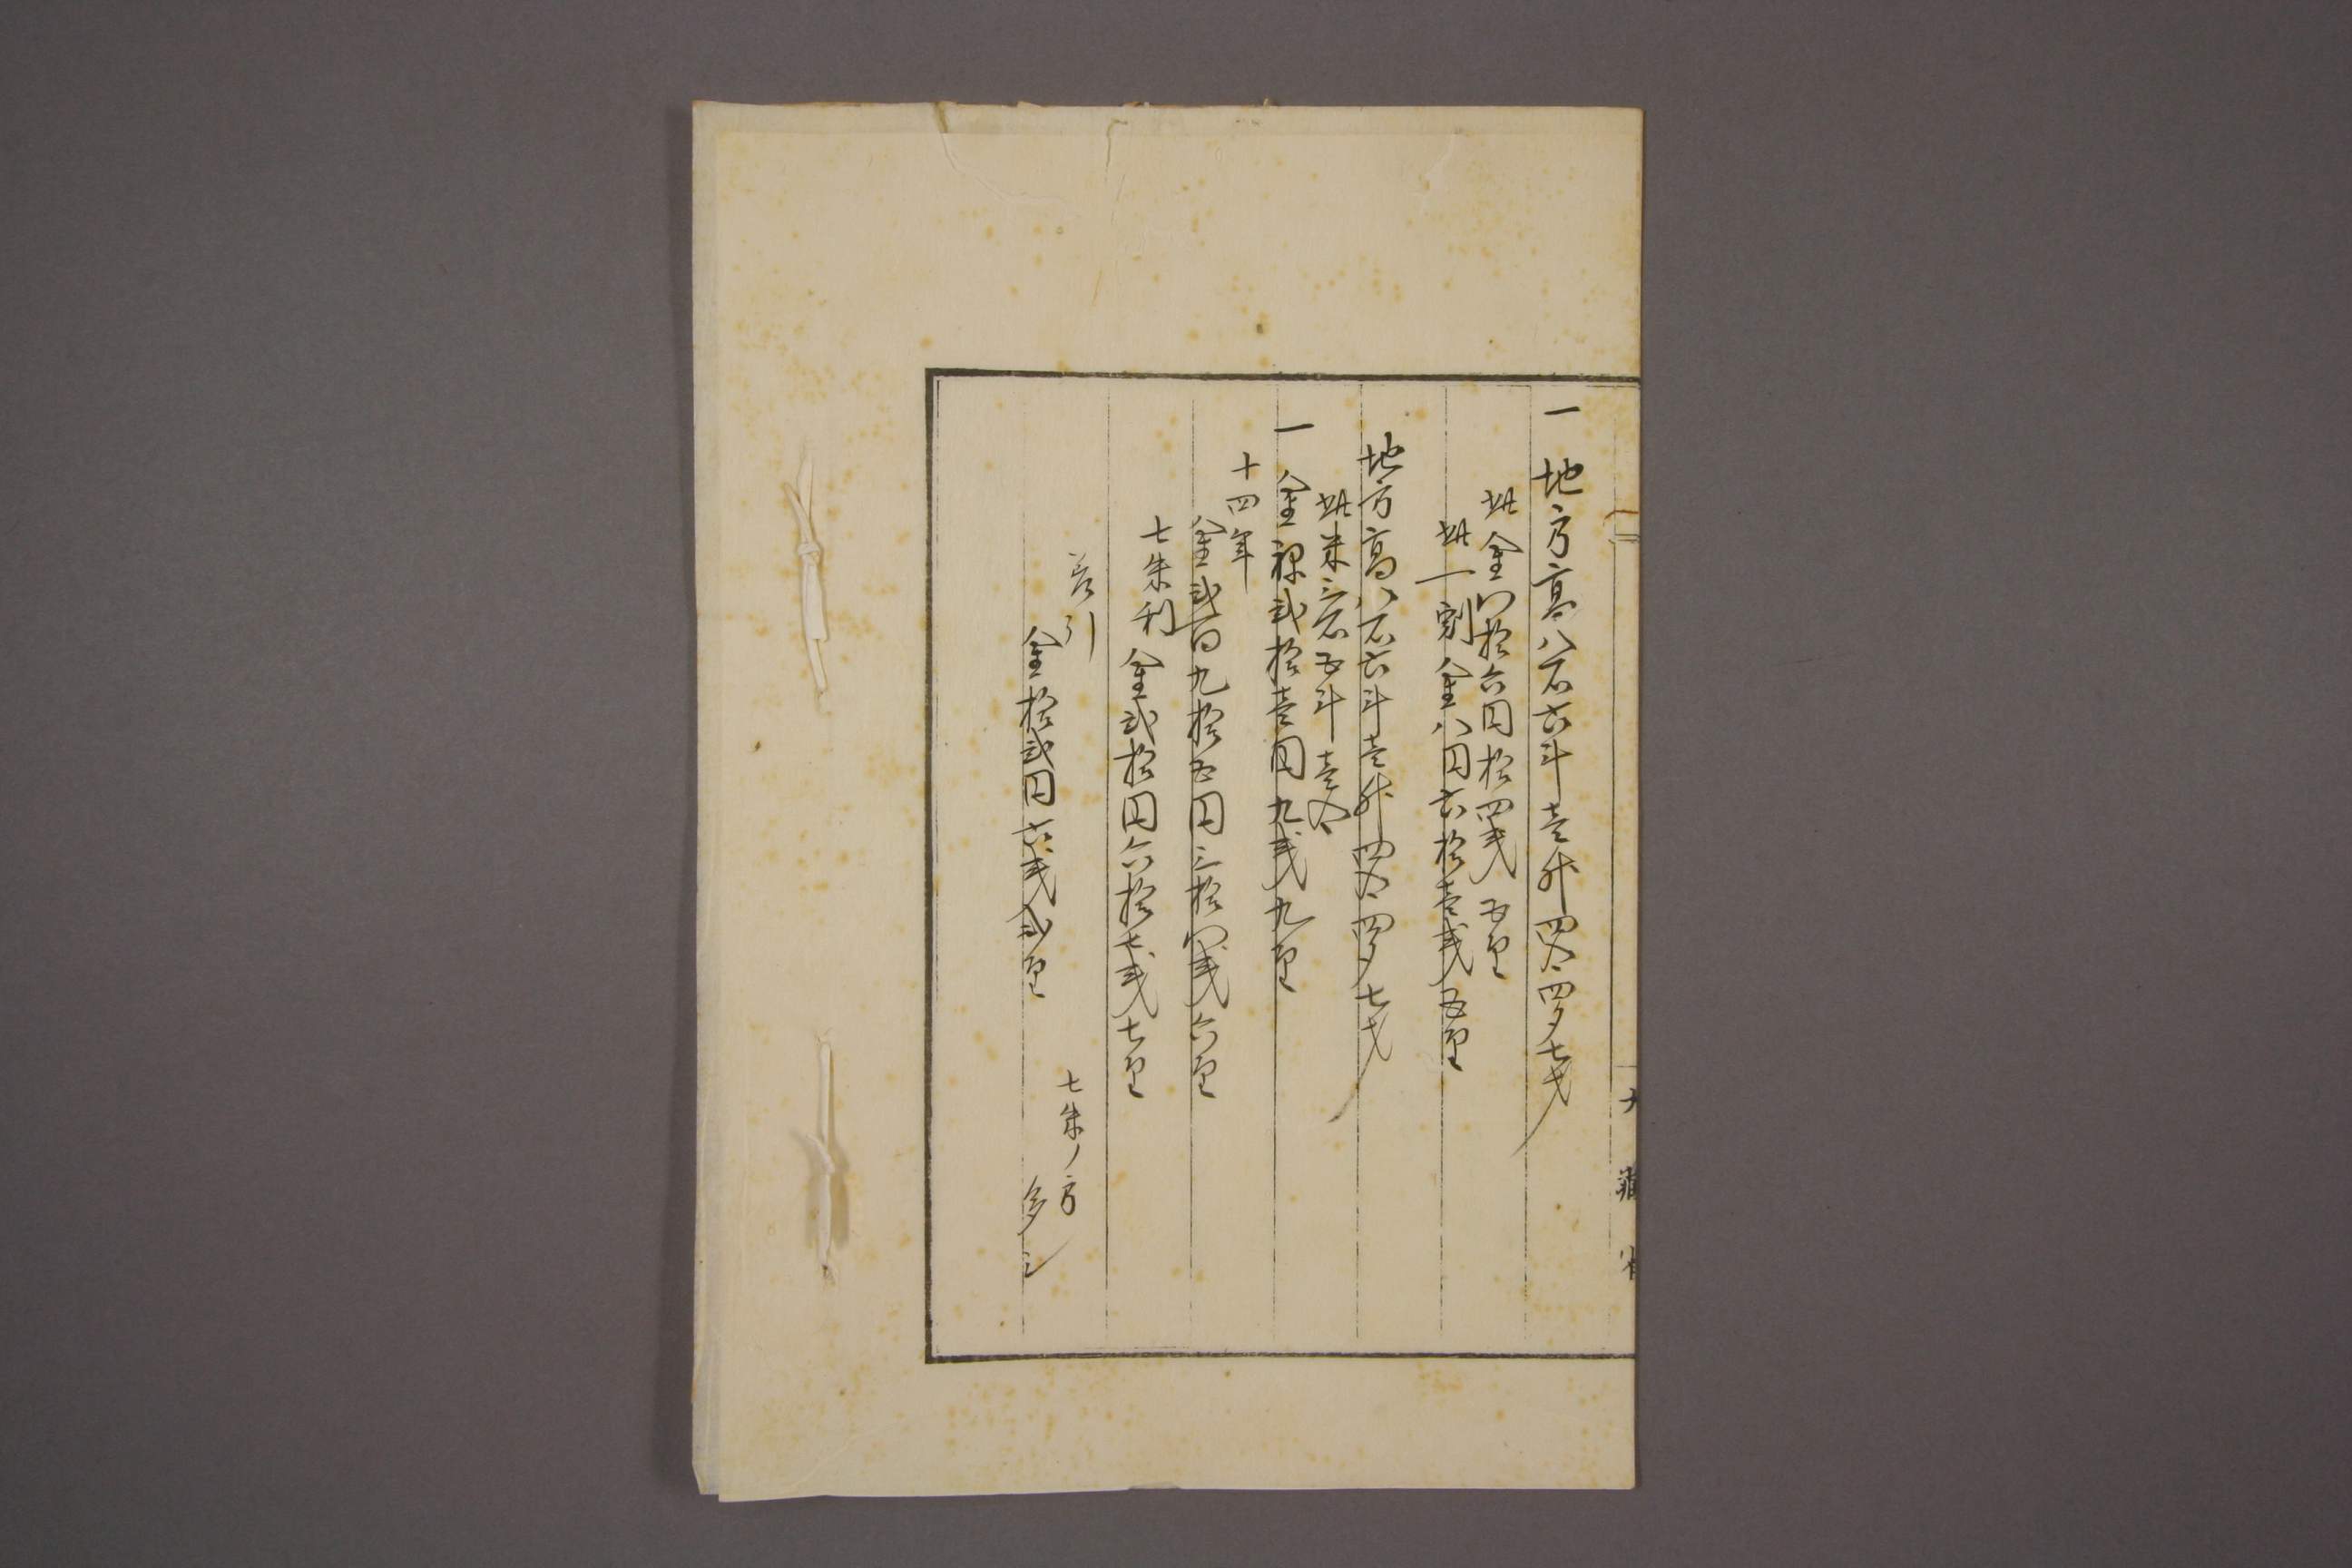 大藏省
一 地方高八石六斗壱升四合四夕七才
此金八拾六円拾四銭五厘
此一割金八円六拾壱銭五厘
地方高八石六斗壱升四合四夕七才
此米三石五斗壱合
一 金禄弐拾壱円九銭九厘
十四年
金弐百九拾五円三拾八銭六厘
七朱利
金弐拾円六拾七銭七厘
差引
金拾弐円六銭弐厘
七朱ノ方
多シ